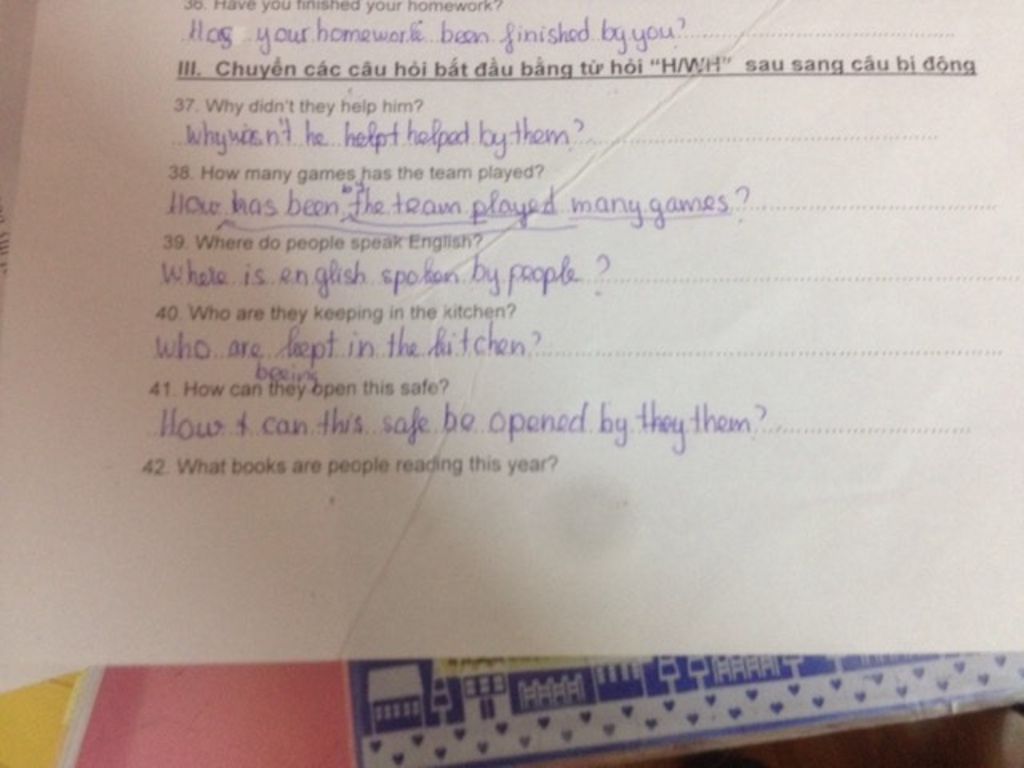 36. Have you finished your homework?
Has your homework been finished by you?
III. Chuyển các câu hỏi bắt đầu bằng từ hỏi "H/WH" sau sang câu bị động
37. Why didn't they help him?
Why wasn't he helpt helped by them?
38. How many games has the team played?
by
How has been the team played many games?
39. Where do people speak English?
Where is english spoken by people?
40. Who are they keeping in the kitchen?
Who are kept in the kitchen?
being
41. How can they open this safe?
How t can this safe be opened by they them?
42. What books are people reading this year?